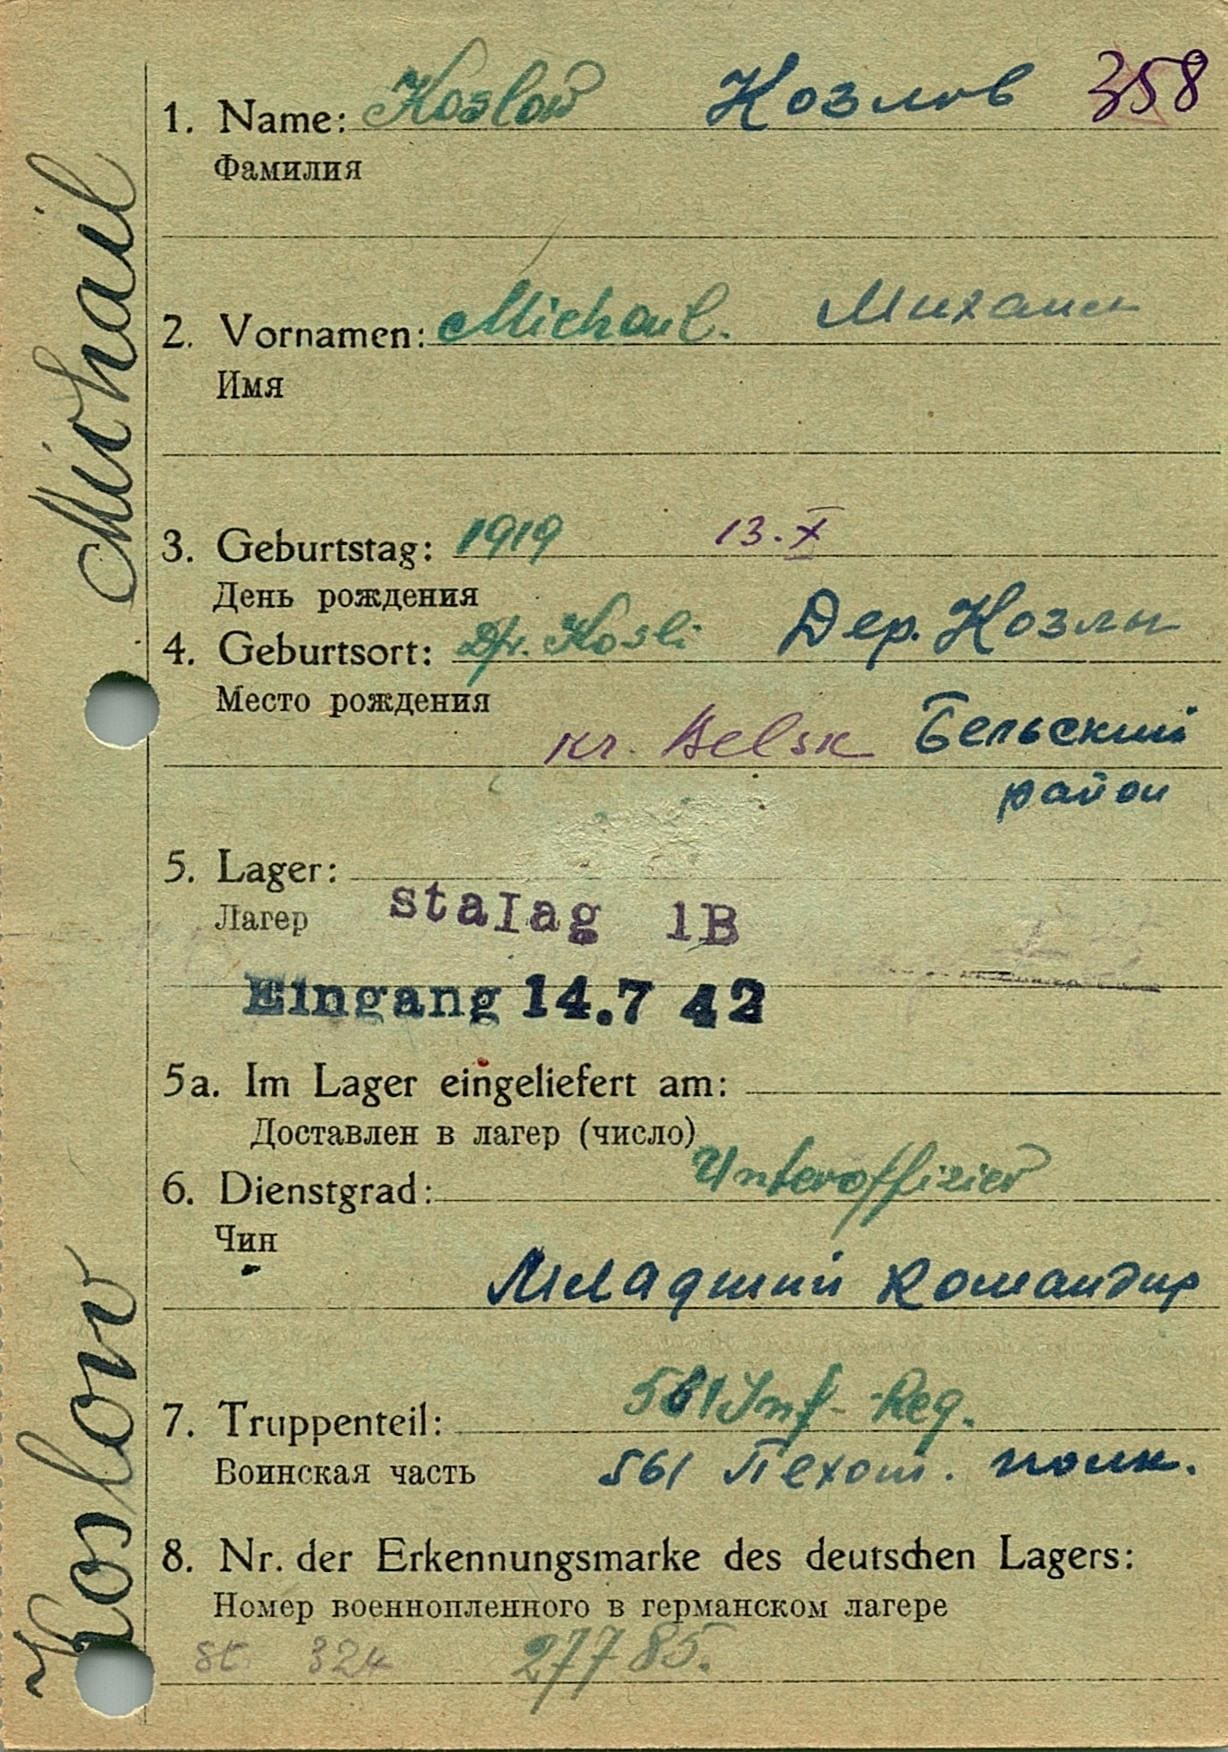 Koslow Michail
1. Name: Koslow Козлов 358
Фамилия
2. Vornamen: Michail. Михаил
Имя
3. Geburtstag: 1919 13.X
День рождения
4. Geburtsort: Dfr. Kosli Дер. Козлы
Место рождения
kr. Belsk Бельский
район
5. Lager:
Лагер
stalag 1B
Eingang 14.7 42
5a. Im Lager eingeliefert am:
Доставлен в лагер (число)
6. Dienstgrad: Unteroffizier
Чин
Младший командир
7. Truppenteil: 561 Inf-Reg.
Воинская часть 561 Пехот. полк.
8. Nr. der Erkennungsmarke des deutschen Lagers:
Номер военнопленного в германском лагере
St 324 27785.